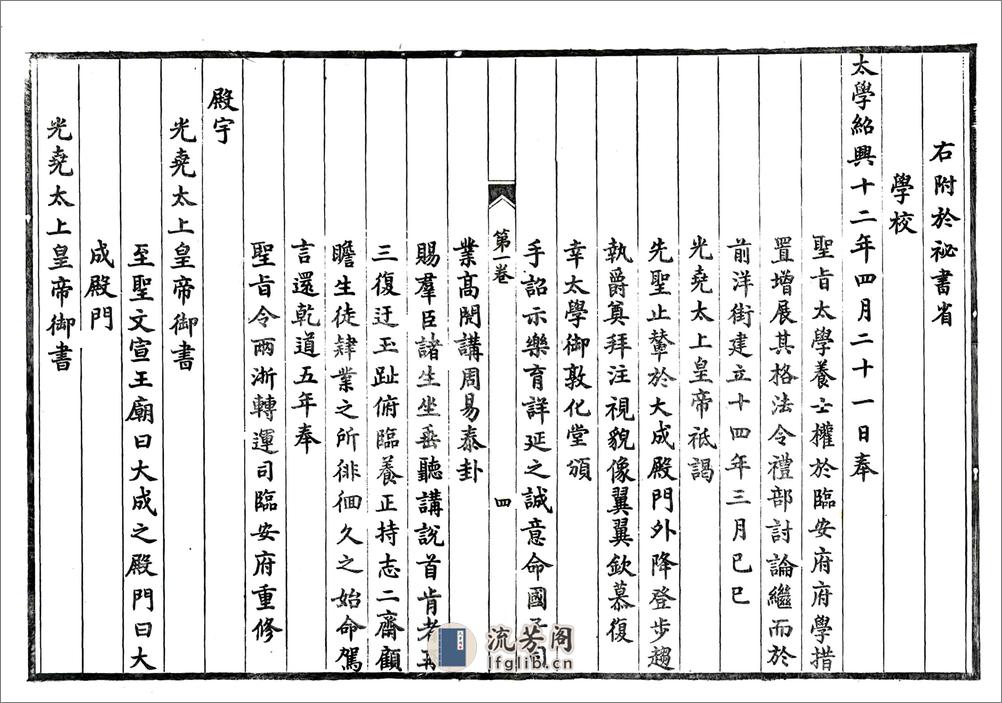 右附於祕書省
學校
太學紹興十二年四月二十一日奉
聖旨太學養士權於臨安府府學措
置增展其格法令禮部討論繼而於
前洋街建立十四年三月己巳
光堯太上皇帝祗謁
先聖止輦於大成殿門外降登步趨
執爵奠拜注視貌像翼翼欽慕復
幸太學御敦化堂頒
手詔示樂育詳延之誠意命國子司
第一卷
四
業高閌講周易泰卦
賜羣臣諸生坐垂聽講說首肯者再
三復迂玉趾俯臨養正持志二齋顧
瞻生徒肄業之所徘徊久之始命駕
言還乾道五年奉
聖旨令兩浙轉運司臨安府重修
殿宇
光堯太上皇帝御書
至聖文宣王廟曰大成之殿門曰大
成殿門
光堯太上皇帝御書
流芳阁
lfglib.cn